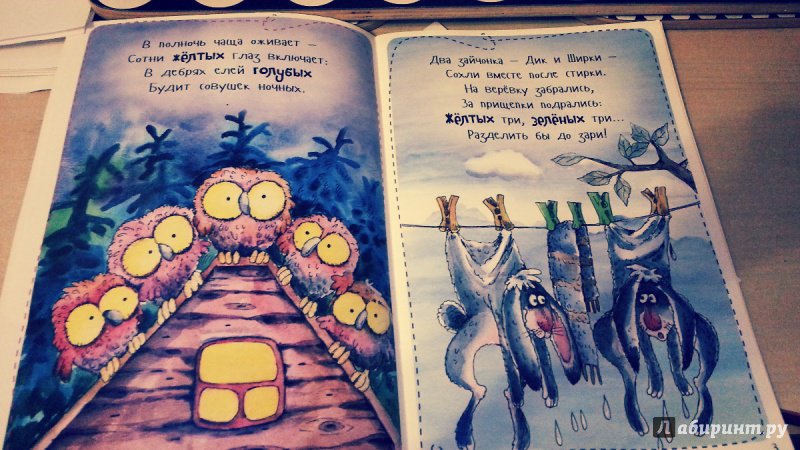 В полночь чаща оживает –
Сотни жёлтых глаз включает:
В дебрях елей голубых
Будит совушек ночных.
Два зайчонка – Дик и Ширки –
Сохли вместе после стирки.
На верёвку забрались,
За прищепки подрались:
жёлтых три, зелёных три...
Разделить бы до зари!
Лабиринт.ру